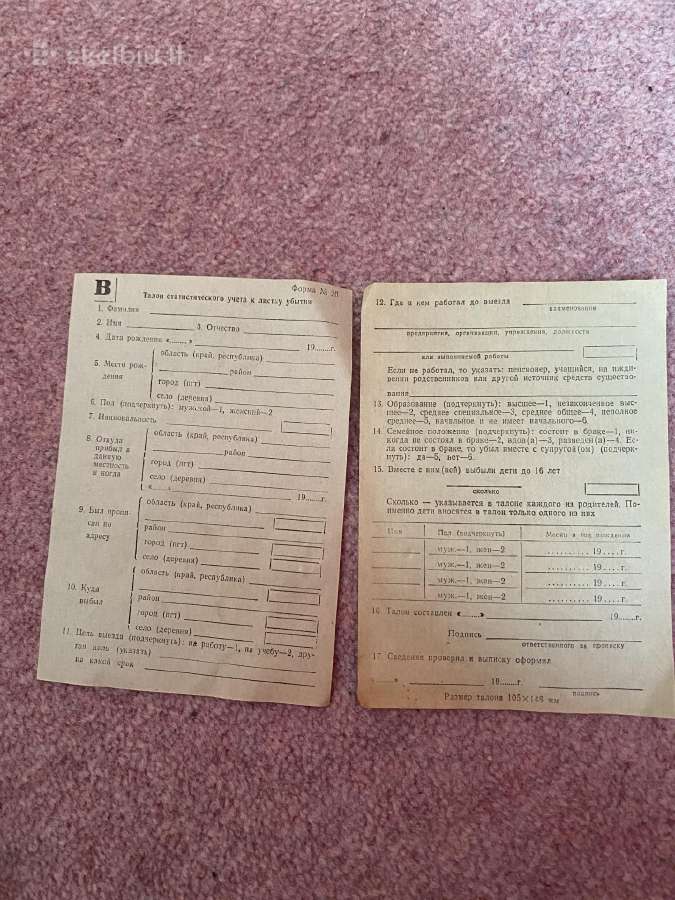 skelbiu.lt
В
Форма №
Талон статистического учета к листку убытия
1. Фамилия
2. Имя 3. Отчество
4. Дата рождения «......» 19......г.
5. Место рож-
дения
область (край, республика)
район
город (пгт)
село (деревня)
6. Пол (подчеркнуть): мужской—1, женский—2
7. Национальность
8. Откуда
прибыл в
данную
местность
и когда
область (край, республика)
район
город (пгт)
село (деревня)
«......» 19......г.
9. Был пропи-
сан по
адресу
область (край, республика)
район
город (пгт)
село (деревня)
10. Куда
выбыл
область (край, республика)
район
город (пгт)
село (деревня)
11. Цель выезда (подчеркнуть): на работу—1, на учебу—2, дру-
гая цель (указать)
на какой срок
12. Где и кем работал до выезда
наименование
предприятия, организации, учреждения, должность
или выполняемой работы
Если не работал, то указать: пенсионер, учащийся, на ижди-
вении родственников или другой источник средств существо-
вания
13. Образование (подчеркнуть): высшее—1, незаконченное выс-
шее—2, среднее специальное—3, среднее общее—4, неполное
среднее—5, начальное и не имеет начального—6.
14. Семейное положение (подчеркнуть): состоит в браке—1, ни-
когда не состоял в браке—2, вдов(а)—3, разведен(а)—4. Ес-
ли состоит в браке, то убыл вместе с супругой(ом) (подчерк-
нуть): да—5, нет—6.
15. Вместе с ним(ней) выбыли дети до 16 лет
сколько
Сколько — указывается в талоне каждого из родителей. По-
именно дети вносятся в талон только одного из них
Имя Пол (подчеркнуть) Месяц и год рождения
муж.—1, жен—2 ..........19....г.
муж.—1, жен—2 ..........19....г.
муж.—1, жен—2 ..........19....г.
муж.—1, жен—2 ..........19....г.
16. Талон составлен «......» 19......г.
Подпись
ответственного за прописку
17. Сведения проверил и выписку оформил
«......» 19......г.
подпись
Размер талона 105×148 мм